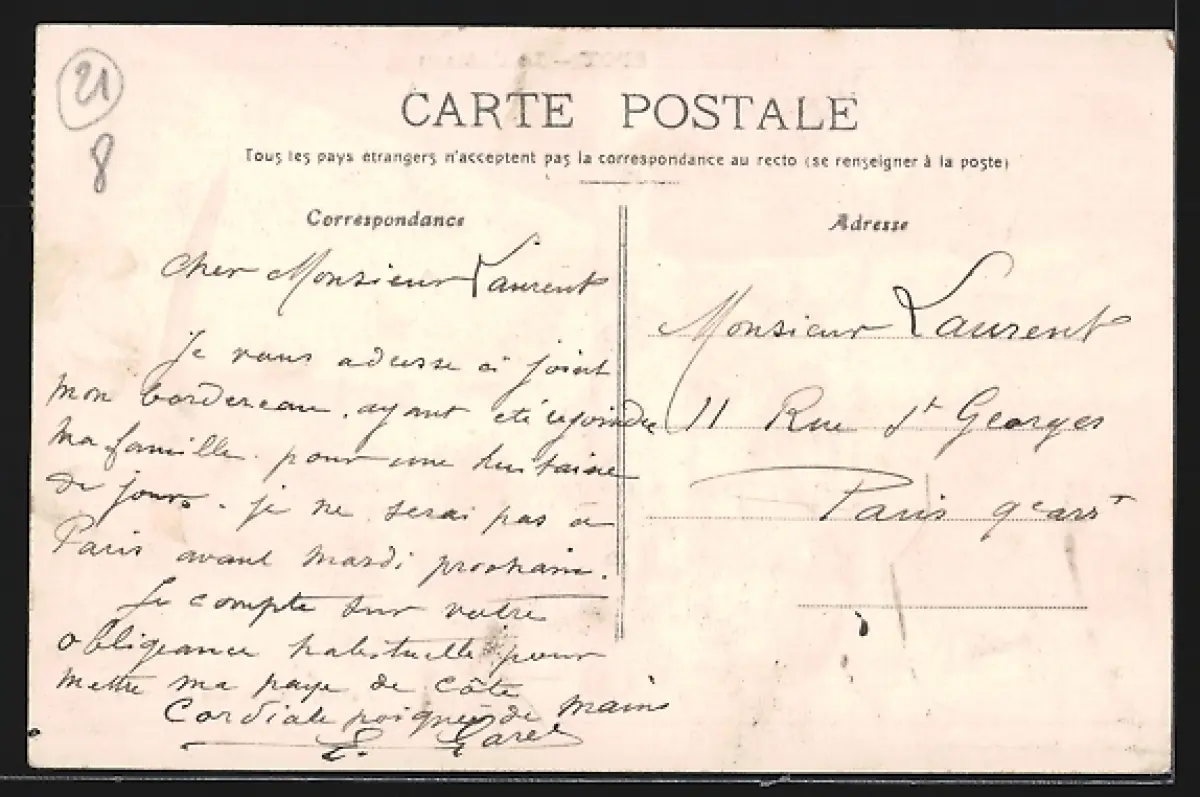 21
8
CARTE POSTALE
Tous les pays étrangers n'acceptent pas la correspondance au recto (se renseigner à la poste)
Correspondance
Cher Monsieur Laurent
Je vous adresse ci joint
mon bordereau. ayant été rejoindre
ma famille. pour une huitaine
de jours. je ne serai pas à
Paris avant mardi prochain.
Je compte sur votre
obligeance habituelle pour
mettre ma paye de côté
Cordiale poignée de main
E.
Adresse
Monsieur Laurent
11 Rue St Georges
Paris 9e arrt